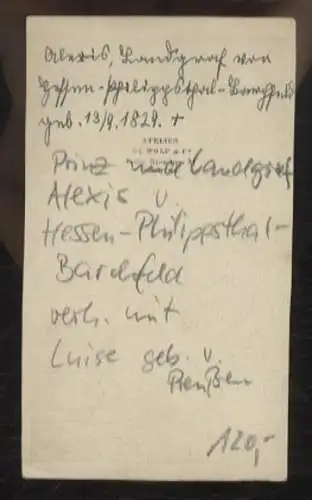 Alexis, Landgraf von
Hessen-Philippsthal-Barchfeld
geb. 13/9. 1829. +
ATELIER
WOLF & Co
Prinz und Landgraf
Alexis v.
Hessen-Philippsthal-
Barchfeld
verh. mit
Luise geb. v.
Preußen
120,-